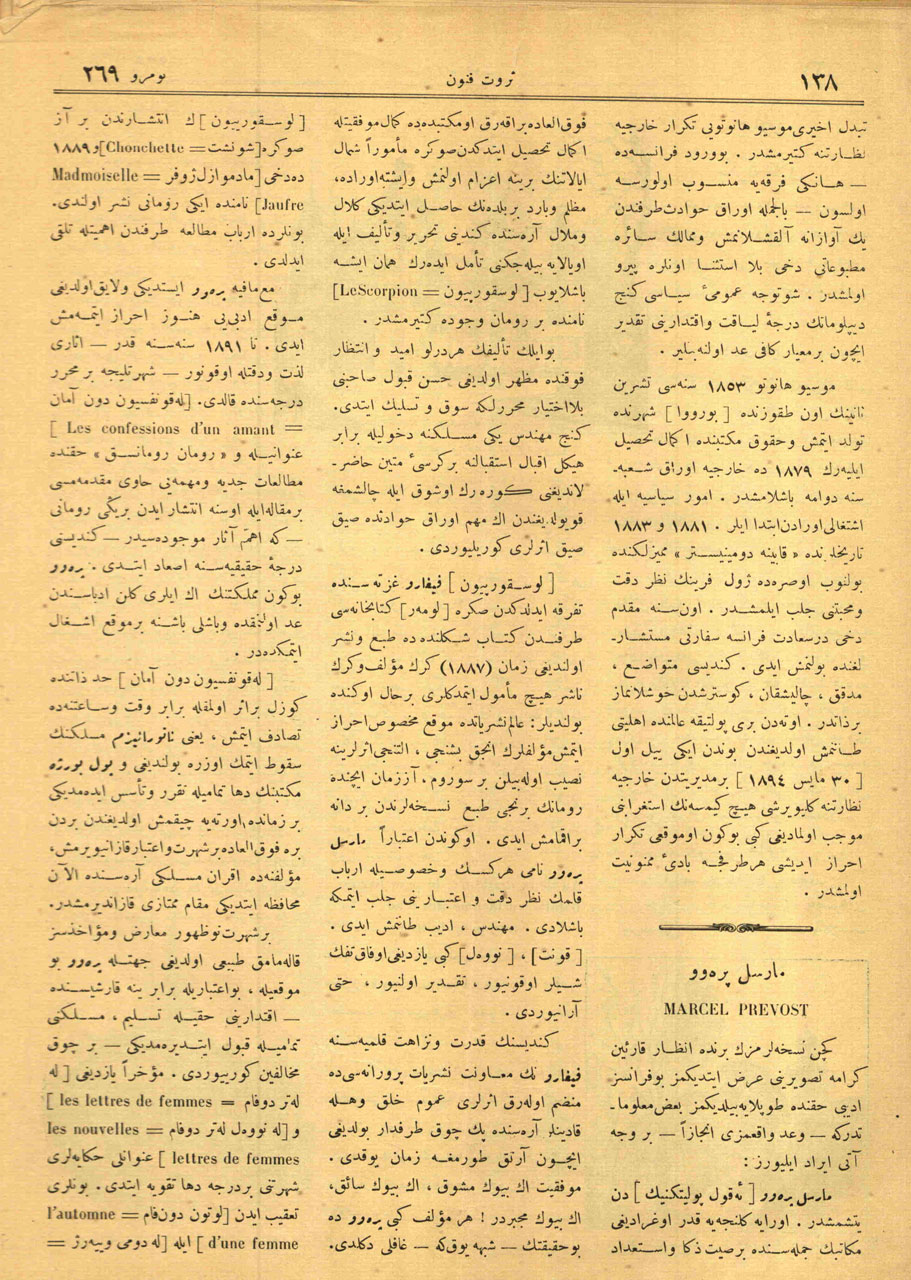 ١٣٨
ثروت فنون
نومرو ٢٦٩
تبدل اخیری موسیو هانوتویی تكرار خارجیه
نظارتنه كتیرمشدر . بوورود فرانسه‌ده
— هانكی فرقه‌یه منسوب اولورسه
اولسون — بالجمله اوراق حوادث طرفندن
پك آوازانه آلقشلانمش وممالك سائره
مطبوعاتی دخی بلا استثنا اونلره پیرو
اولمشدر . شو توجه عمومیٔ سیاسی كنج
دیپلوماتك درجهٔ لیاقت واقتدارینی تقدیر
ایچون بر معیار كافی عد اولنه بیلیر .
موسیو هانوتو ١٨٥٣ سنه‌سی تشرین
ثانینك اون طقوزنده [ بورووا ] شهرنده
تولد ایتمش وحقوق مكتبنده اكمال تحصیل
ایلیه‌رك ١٨٧٩ ده خارجیه اوراق شعبه‌ـ
سنه دوامه باشلامشدر . امور سیاسیه ایله
اشتغالی اورادن ابتدا ایلر . ١٨٨١ و ١٨٨٣
تاریخلرنده « قابینه دومینیستر » ممیزلكنده
بولنوب اوصره‌ده ژول فرینك نظر دقت
ومحبتنی جلب ایلمشدر . اون سنه مقدم
دخی درسعادت فرانسه سفارتی مستشارـ
لغنده بولنمش ایدی . كندیسی متواضع ،
مدقق ، چالیشقان ، كوسترشدن خوشلانماز
بر ذاتدر . اوته‌دن بری پولتیقه عالمنده اهلیتی
طانمش اولدیغندن بوندن ایكی ییل اول
[ ٣٠ مایس ١٨٩٤ ] بر مدیریتدن خارجیه
نظارتنه كلیویرشی هیچ كیمسه‌نك استغرابنی
موجب اولمادیغی كبی بوكون اوموقعی تكرار
احراز ایدیشی هر طرفجه بادیٔ ممنونیت
اولمشدر .
مارسل پره‌وو
MARCEL PREVOST
كچن نسخه‌لرمزك برنده انظار قارئین
كرامه تصویرینی عرض ایتدیكمز بوفرانسز
ادیبی حقنده طوپلایه بیلدیكمز بعض معلوماـ
تدركه — وعد واقعمزی انجازاً — بر وجه
آتی ایراد ایلیورز :
مارسل پره‌وو [ ئه‌قول پولیتكنیك ] دن
یتشمشدر . اورایه كلنجه‌یه قدر اوغرادیغی
مكاتبك جمله‌سنده بر صیت ذكا واستعداد
فوق العاده براقه‌رق اومكتبده‌ده كمال موفقیتله
اكمال تحصیل ایتدكدن صوكره مأموراً شمال
ایالاتنك برینه اعزام اولنمش وایشته اوراده،
مظلم وبارد بر بلده‌نك حاصل ایتدیكی كلال
وملال آره‌سنده كندینی تحریر وتألیف ایله
اویالایه بیله‌جكنی تأمل ایده‌رك همان ایشه
باشلایوب [ لوسقورپیون = LeScorpion]
نامنده بر رومان وجوده كتیرمشدر .
بوایلك تألیفك هر درلو امید و انتظار
فوقنده مظهر اولدیغی حسن قبول صاحبنی
بلا اختیار محررلكه سوق و تسلیك ایتدی.
كنج مهندس یكی مسلكنه دخولیله برابر
هیكل اقبال استقبالنه بر كرسیٔ متین حاضرـ
لاندیغنی كوره‌رك اوشوق ایله چالشمغه
قویولدیغندن اك مهم اوراق حوادثده صیق
صیق اثرلری كوریلیوردی .
[ لوسقورپیون ] فیغارو غزته سنده
تفرقه ایدلدكدن صكره [لومه‌ر] كتابخانه‌سی
طرفندن كتاب شكلنده ده طبع ونشر
اولندیغی زمان (١٨٨٧) كرك مؤلف وكرك
ناشر هیچ مأمول ایتمدكلری بر حال اوكنده
بولندیلر : عالم نشریاتده موقع مخصوص احراز
ایتمش مؤلفلرك انجق بشنجی ، التنجی اثرلرینه
نصیب اوله‌بیلن بر سوروم ، آز زمان ایچنده
رومانك برنجی طبع نسخه‌لرندن بر دانه
براقمامش ایدی . اوكوندن اعتباراً مارسل
پره‌وو نامی هركسك وخصوصیله ارباب
قلمك نظر دقت و اعتبارینی جلب ایتمكه
باشلادی . مهندس ، ادیب طانتمش ایدی .
[ قونت] ، [ نوول] كبی یازدیغی اوفاق تفك
شیلر اوقونیور ، تقدیر اولنیور ، حتی
آرانیوردی .
كندیسنك قدرت ونزاهت قلمیه‌سنه
فیغارو نك معاونت نشریات پرورانه‌سی ده
منضم اوله‌رق اثرلری عموم خلق وهله
قادینلر آره‌سنده پك چوق طرفدار بولدیغی
ایچون آرتق طورمغه زمان یوقدی .
موفقیت اك بیوك مشوق ، اك بیوك سائق،
اك بیوك مجبردر ! هر مؤلف كبی پره‌وو ده
بوحقیقتك — شبهه یوق كه — غافلی دكلدی.
[ لوسقورپیون ] ك انتشارندن بر آز
صوكره [شونشت = Chonchette] و ١٨٨٩
ده دخی [مادموازل ژوفر = Madmoiselle
Jaufre] نامنده ایكی رومانی نشر اولندی.
بونلرده ارباب مطالعه طرفندن اهمیتله تلقی
ایدلدی .
مع مافیه پره‌وو ایستدیكی ولایق اولدیغی
موقع ادبی‌یی هنوز احراز ایتمه‌مش
ایدی . تا ١٨٩١ سنه‌سنه قدر — اثاری
لذت ودقتله اوقونور — شهرتلیجه بر محرر
درجه سنده قالدی . [له قونفسیون دون آمان
= Les confessions d'un amant ]
عنوانیله و « رومان رومانسق » حقنده
مطالعات جدیه ومهمه‌یی حاوی مقدمه‌سی
بر مقاله ایله اوسنه انتشار ایدن بریكی رومانی
— كه اهم آثار موجوده‌سیدر — كندیسنی
درجهٔ حقیقیه‌سنه اصعاد ایتدی . پره‌وو
بوكون مملكتنك اك ایلری كلن ادباسندن
عد اولنمقده وباشلی باشنه بر موقع اشغال
ایتمكده‌در .
[ له قونفسیون دون آمان ] حد ذاتنده
كوزل بر اثر اولمغله برابر وقت وساعتنه‌ده
تصادف ایتمش ، یعنی ناتورالیزم مسلكنك
سقوط ایتمك اوزره بولندیغی و پول بورژه
مكتبنك دها تمامیله تقرر وتأسس ایده‌مدیكی
بر زمانده اورته‌یه چیقمش اولدیغندن بردن
بره فوق العاده بر شهرت واعتبار قازانیویرمش،
مؤلفنه‌ده اقران مسلكی آره‌سنده الآن
محافظه ایتدیكی مقام ممتازی قازاندیرمشدر.
بر شهرت نوظهور معارض ومؤاخذسز
قاله‌مامق طبیعی اولدیغی جهتله پره‌وو بو
موقعیله ، بواعتباریله برابر ینه قارشیسنده
— اقتدارینی حقیله تسلیم ، مسلكنی
تمامیله قبول ایتدیره‌مدیكی — بر چوق
مخالفین كورییوردی . مؤخراً یازدیغی [ له
له‌تر دوفام = les lettres de femmes ]
و [له نووه‌ل له‌تر دوفام = les nouvelles
lettres de femmes ] عنوانلی حكایه‌لری
شهرتنی بر درجه دها تقویه ایتدی . بونلری
تعقیب ایدن [لوتون دون فام = l'automne
d'une femme ] ایله [له دومی وییه‌رژ =